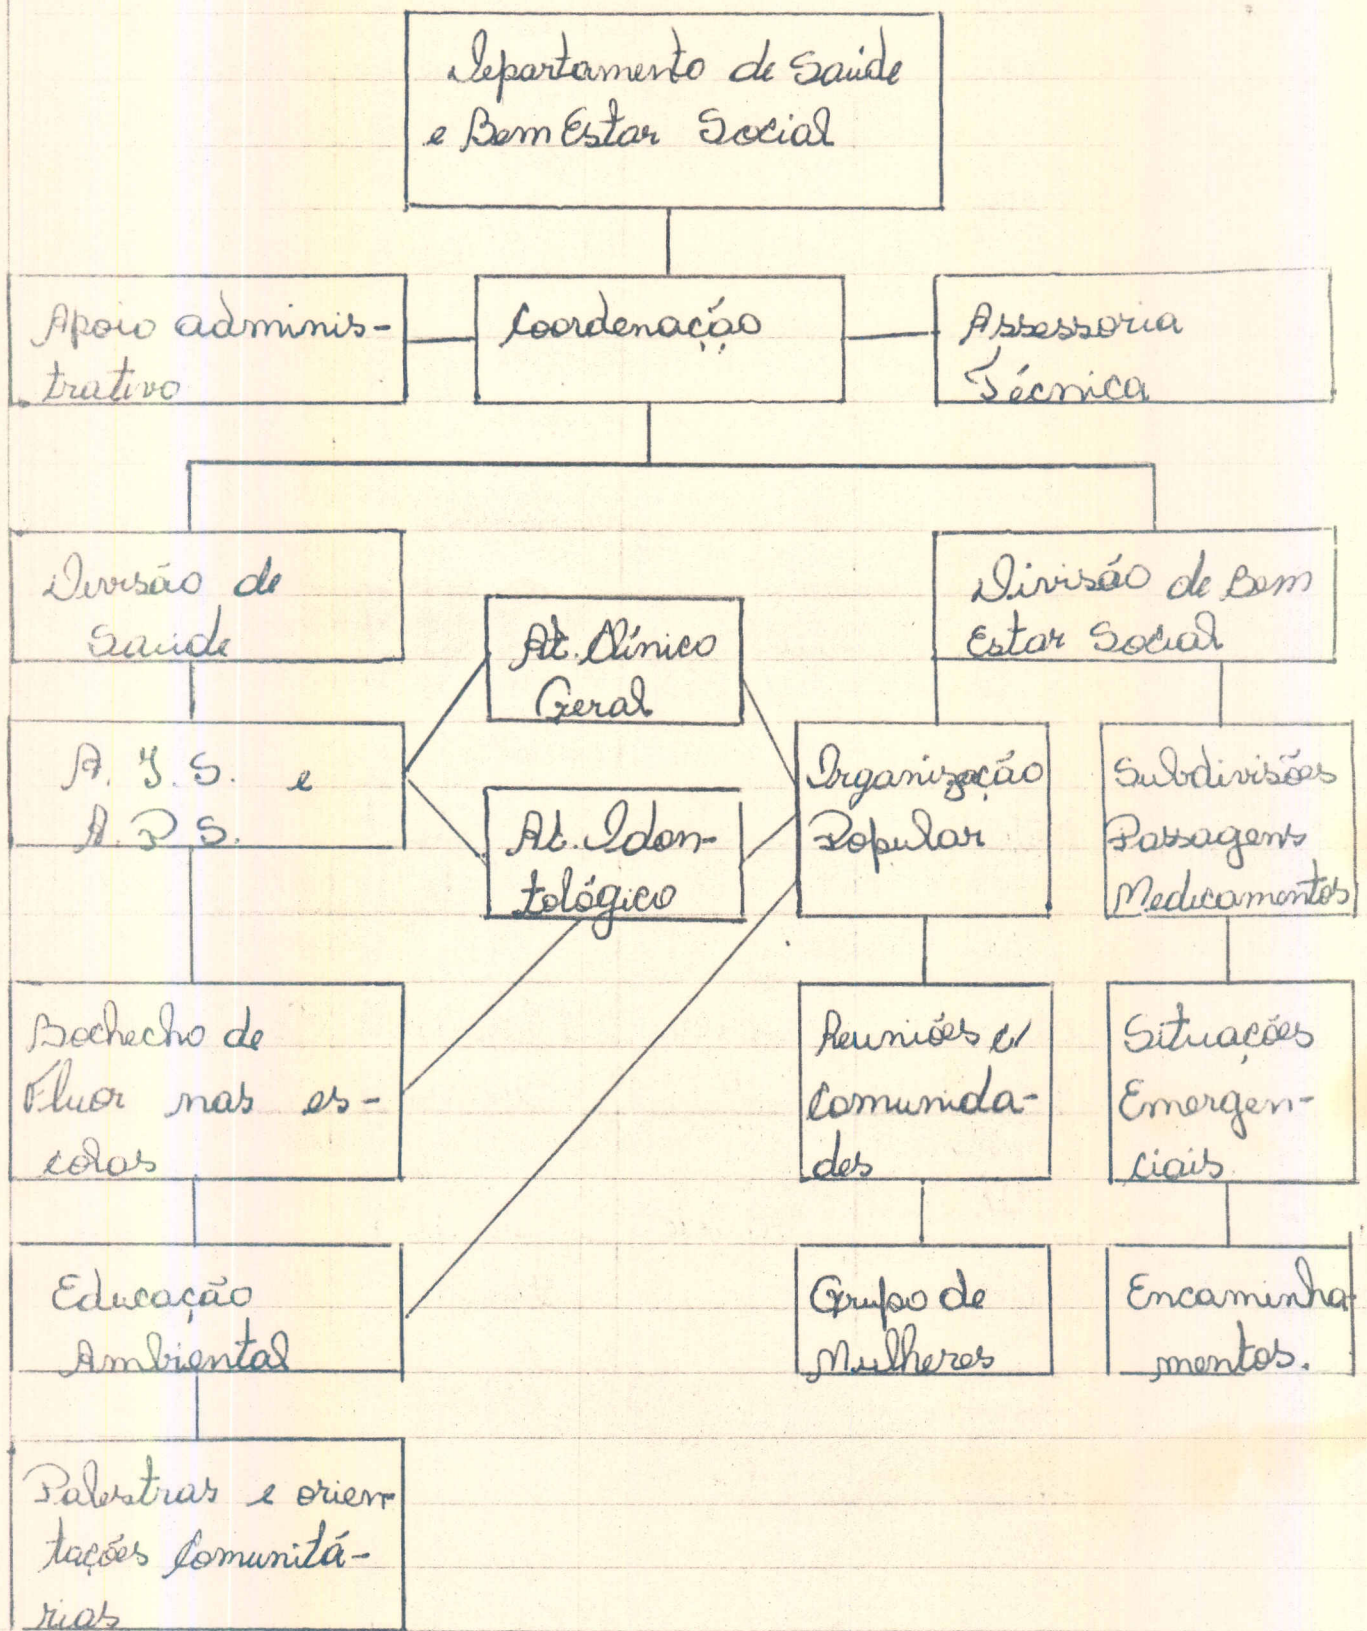 Departamento de Saúde
e Bem Estar Social
Apoio adminis-
trativo
Coordenação
Assessoria
Técnica
Divisão de
Saúde
Divisão de Bem
Estar Social
At. Clínico
Geral
A. I. S. e
A. P. S.
At. Odon-
tológico
Organização
Popular
Subdivisões
Passagens
Medicamentos
Bochecho de
Fluor nas es-
colas
Reuniões c/
Comunida-
des
Situações
Emergen-
ciais.
Educação
Ambiental
Grupo de
Mulheres
Encaminha-
mentos.
Palestras e orien-
tações Comunitá-
rias